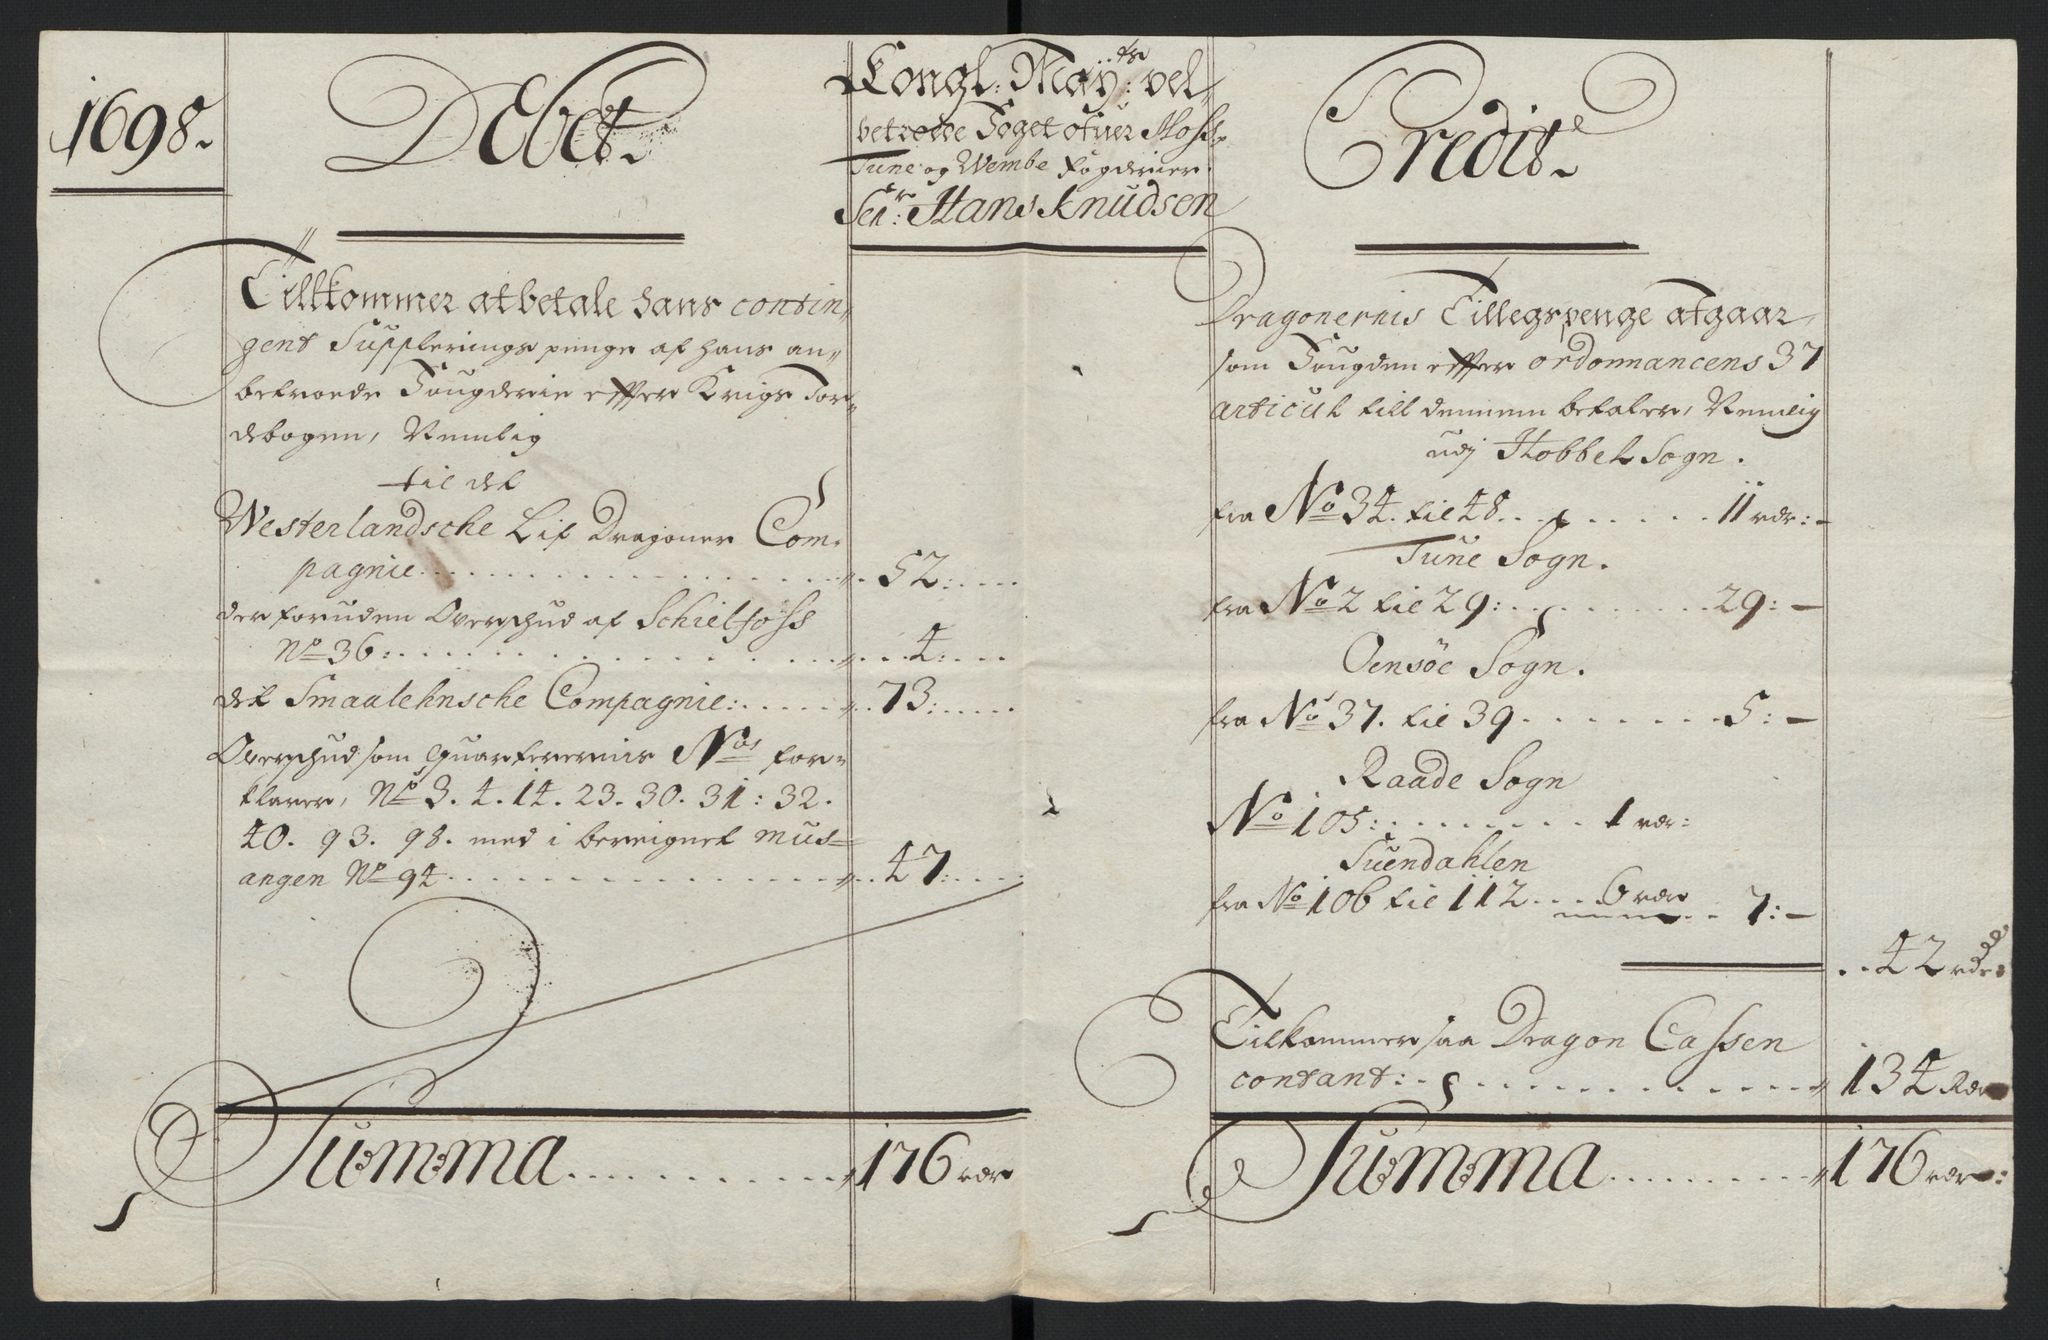 1698.
Debet
Congl: May:ts vel
betroede Foget ofuer Moss
Tune og Wembe fogderier
Sen:r Hans Knudsen
Credit
Tillkommer at betale hans contin
gent Supplerings penge af hans an
betroede Fougderie effter Krigs Jor
debogen, Nemlig
til det
Westerlandsche Lif Dragoner Com
pagnie 52:
der foruden Overschud af Schieltfoss
No 36: 4:
det Smaalehnsche Compagnie: 73:
Overschud som quarterernis Nos for
klarer, No 3. 4. 14. 23. 30. 31: 32.
40. 93. 98. med i bereignet mus
angen No 94 47:
Summa 176 rdr
Dragonernis Tillegspenge atgaar
som Fougden effter ordonnancens 37
articul till dennem betaler, Nemlig
udj Hobbel Sogn.
fra No 34. til 48 11 rdr:
Tune Sogn.
fra No 2 til 29: 29:
Oensöe Sogn.
fra No 37. til 39 5:
Raade Sogn
No 105: 1 rdr:
Suendahlen
fra No 106 til 112 6 rdr 7:
42 rdr:
Tilkommer saa Dragon Cassen
contant: 134 Rdr
Summa 176 rdr: